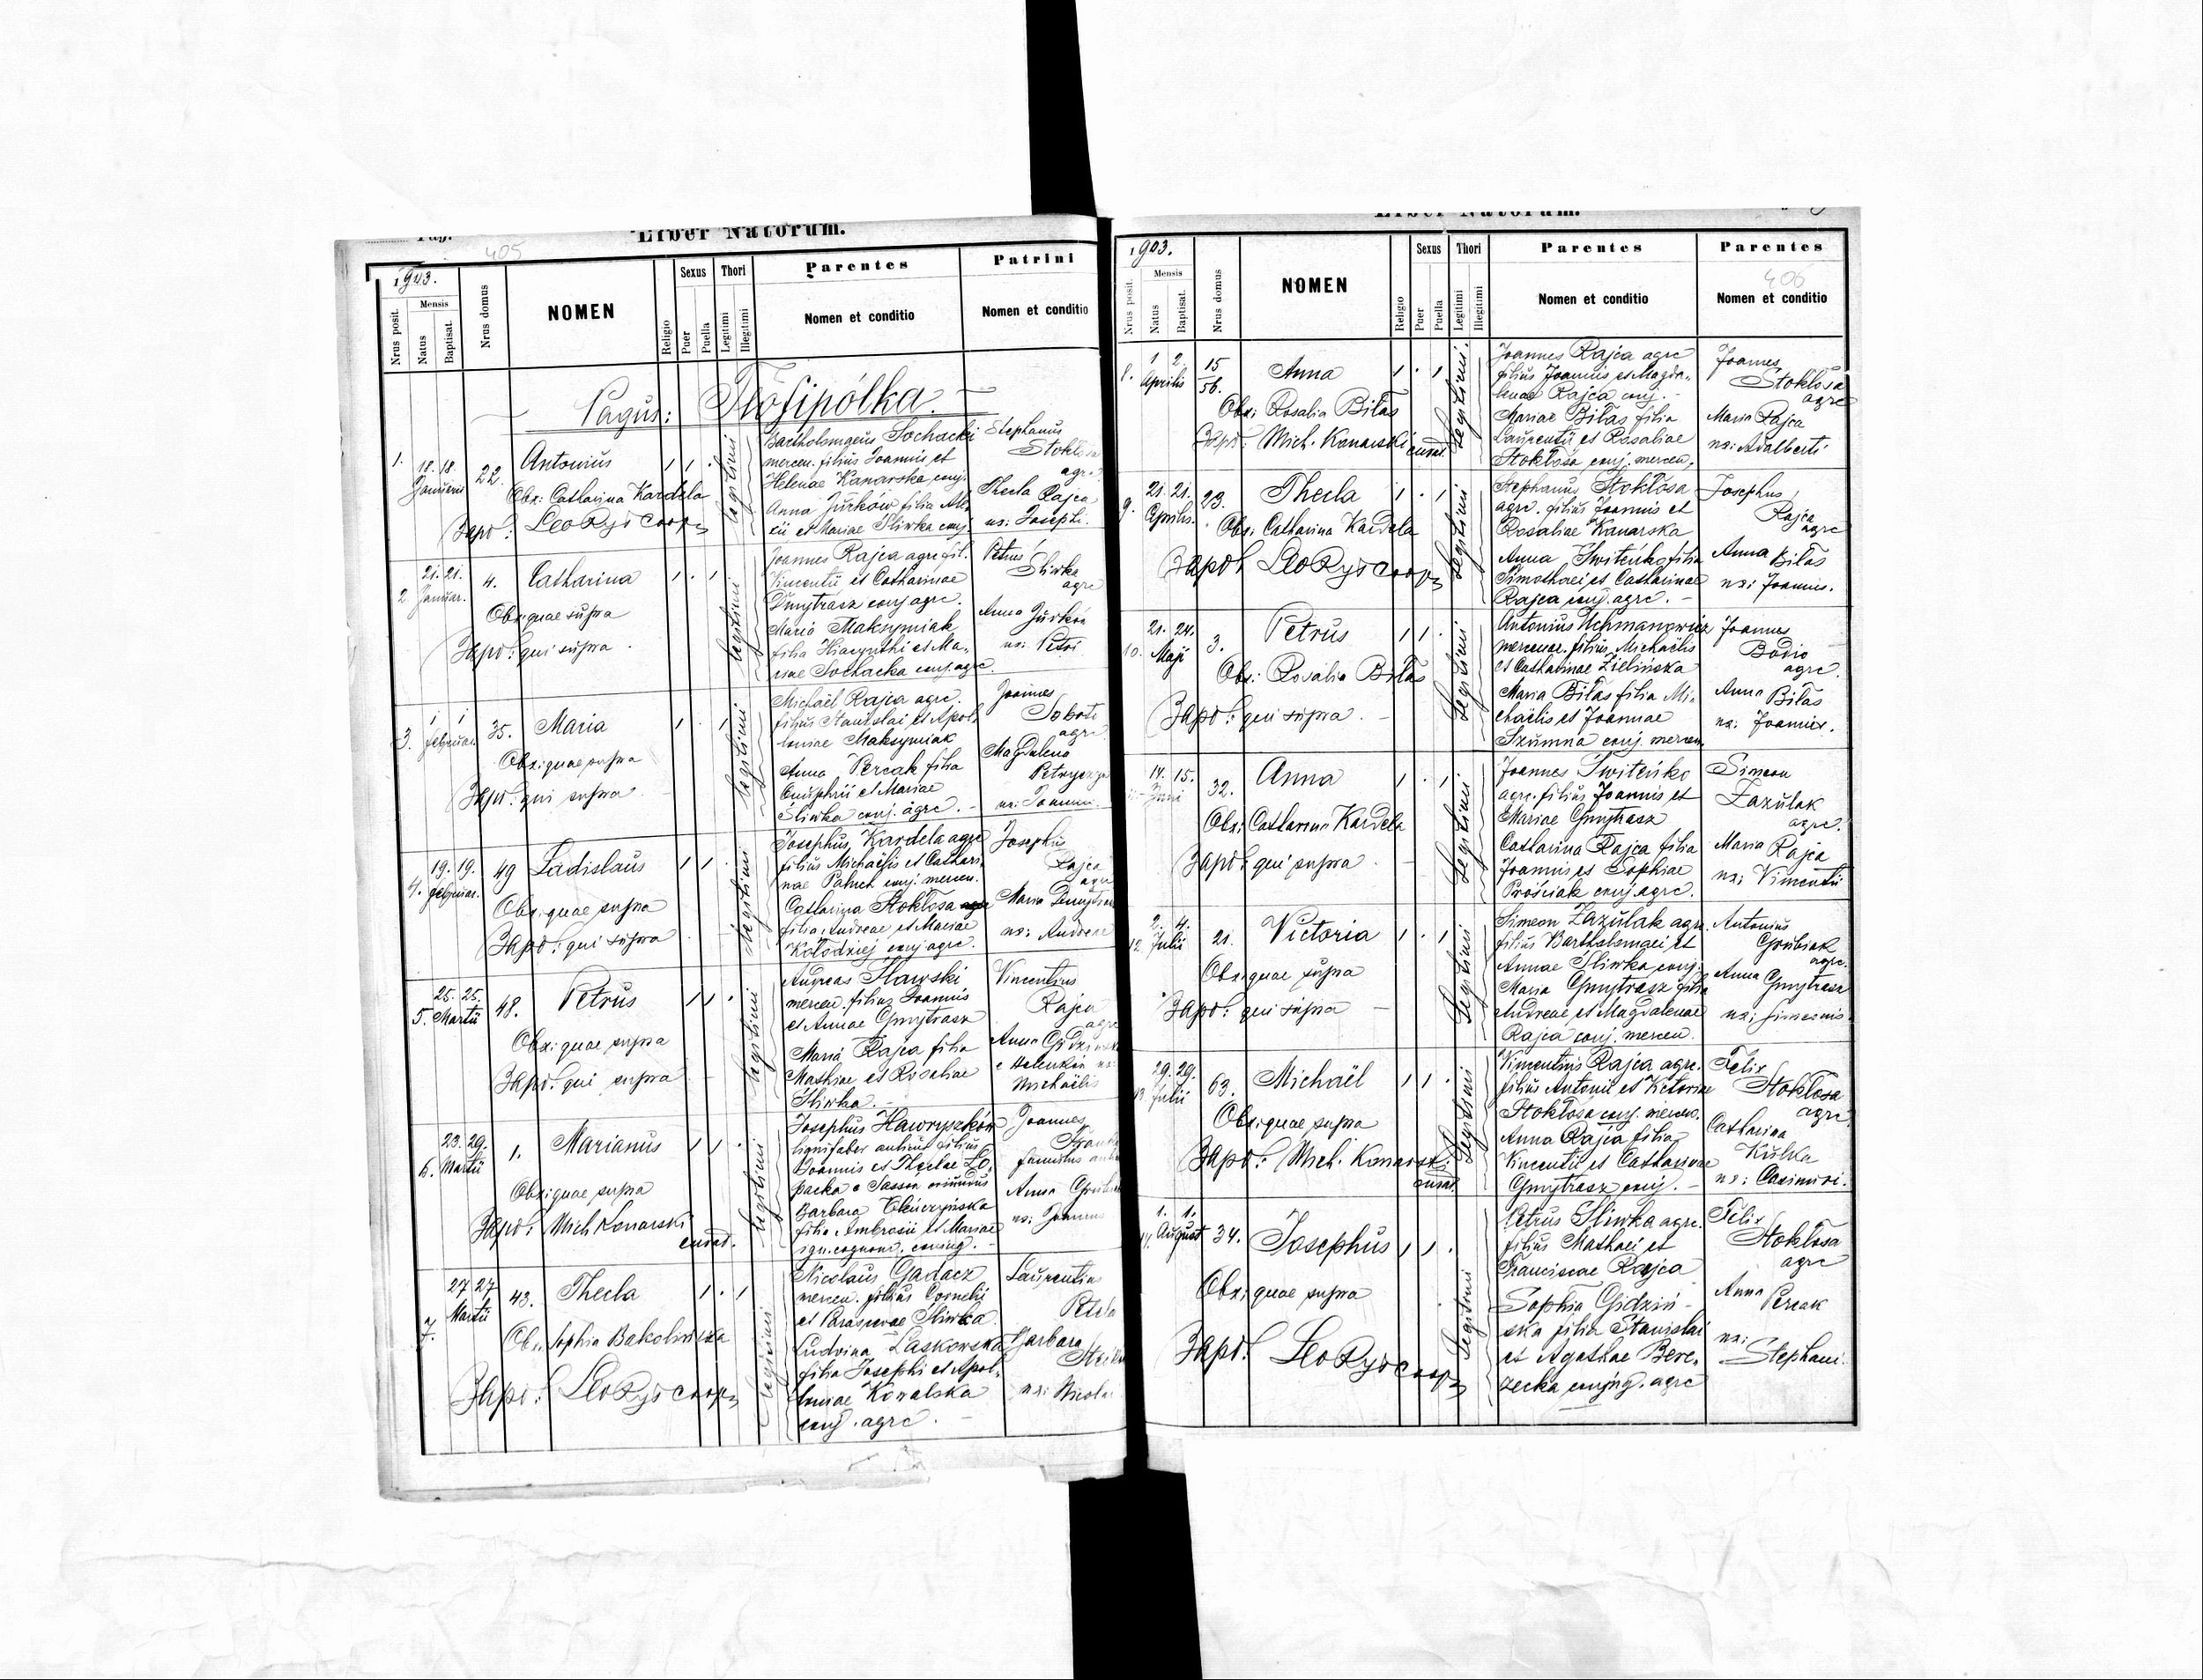 Pag. 405
Liber Natorum.
1903.
Nrus posit.
Mensis
Natus
Baptisat.
Nrus domus
NOMEN
Religio
Sexus
Puer
Puella
Thori
Legitimi
Illegitimi
Parentes
Nomen et conditio
Patrini
Nomen et conditio
Pagus: Teofipólka.
1.
18. 18.
Januarii
22.
Antonius
Obx: Catharina Kardela
Bapt: Leo Rys coop
legitimi
Bartholomaeus Sochacki
mercen. filius Joannis et
Helenae Kanarska conj.
Anna Jurków filia Ale-
xii et Mariae Śliwka conj.
Stephanus
Stokłosa
agr.
Thecla Rajca
ux: Josephi.
2
21. 21.
Januar.
4.
Catharina
Obx: quae supra
Bapt: qui supra
legitimi
Joannes Rajca agrc. fil.
Vincentii et Catharinae
Gmytrasz conj. agrc.
Maria Maksymiak
filia Hiacynthi et Ma-
riae Sochacka conj. agrc
Petrus
Śliwka
agrc
Anna Jurków
ux: Petri
3.
1 1
Februar.
35.
Maria
Obx: quae supra
Bapt: qui supra
legitimi
Michaël Rajca agrc.
filius Stanislai et Apol-
loniae Maksymiak
Anna Percak filia
Onuphrii et Mariae
Śliwka conj. agrc.
Joannes
agrc
Magdalena
ux: Joannis
4.
19. 19.
Februar.
49
Ladislaus
Obx: quae supra
Bapt: qui supra
legitimi
Josephus Kardela agrc
filius Michaëlis et Cathari-
nae conj. mercen.
Catharina Stokłosa
filia Andreae et Mariae
Kołodziej conj. agrc.
Josephus
Rajca
agrc
Maria
ux: Andreae
5.
25. 25.
Martii
48.
Petrus
Obx: quae supra
Bapt: qui supra
legitimi
Andreas Sławski
mercen. filius Joannis
et Annae Gmytrasz
Maria Rajca filia
Mathiae et Rosaliae
Śliwka.
Vincentius
Rajca
agrc
Anna
ux:
Michaëlis
6.
23. 29.
Martii
1.
Marianus
Obx: quae supra
Bapt: Mich. Konarski
curat.
legitimi
Josephus Hawryszków
lignifaber filius
Joannis et Theclae Ło-
packa e Sassów oriundus
Barbara
filia Ambrosii et Mariae
ign. cognom. conjug.
Joannes
Anna
ux: Joannis
7.
27 27
Martii
43.
Thecla
Ob: Sophia
Bapt: Leo Rys coop
legitimi
Nicolaus Gadacz
mercen. filius Cornelii
et Parascevae Śliwka
Ludvina Laskowska
filia Josephi et Apol-
loniae Kowalska
conj. agrc.
Laurentius
Barbara
ux: Nicolai
Liber Natorum.
1903.
Nrus posit.
Mensis
Natus
Baptisat.
Nrus domus
NOMEN
Religio
Sexus
Puer
Puella
Thori
Legitimi
Illegitimi
Parentes
Nomen et conditio
Parentes
406
Nomen et conditio
8.
1 2
Aprilis
15
56.
Anna
Obx: Rosalia Biłas
Bapt: Mich. Konarski curat
Legitimi
Joannes Rajca agrc
filius Joannis et Magda-
lenae Rajca conj.
Mariae Biłas filia
Laurentii et Rosaliae
Stokłosa conj. mercen.
Joannes
Stokłosa
agrc
Maria Rajca
ux: Adalberti
9.
21. 21.
Aprilis.
23.
Thecla
Obx: Catharina Kardela
Bapt Leo Rys coop
Legitimi
Stephanus Stokłosa
agrc. filius Joannis et
Rosaliae Kanarska
Anna Switeńko filia
Timothaei et Catharinae
Rajca conj. agrc.
Josephus
Rajca
agrc
Anna Biłas
ux: Joannis.
10.
21. 24.
Maji
3.
Petrus
Obx: Rosalia Biłas
Bapt: qui supra
Legitimi
Antonius Uchmanowicz
mercenar. filius Michaëlis
et Catharinae Zielińska
Maria Biłas filia Mi-
chaëlis et Joannae
Szumna conj. mercen
Joannes
Bodio
agrc.
Anna Biłas
ux: Joannis.
14. 15.
Juni
32.
Anna
Obx: Catharina Kardela
Bapt: qui supra
Legitimi
Joannes Switeńko
agrc. filius Joannis et
Mariae Gmytrasz
Catharina Rajca filia
Joannis et Sophiae
Prościak conj. agrc.
Simeon
Zazulak
agrc.
Maria Rajca
ux: Vincentii
12
2. 4.
Julii
21.
Victoria
Obx: quae supra
Bapt: qui supra
Legitimi
Simeon Zazulak agrc.
filius Bartholomaei et
Annae Śliwka conj.
Maria Gmytrasz filia
Andreae et Magdalenae
Rajca conj. mercen.
Antonius
Grubiak
agrc.
Anna Gmytrasz
ux: Simeonis.
13
29. 29.
Julii
63.
Michaël
Obx: quae supra
Bapt: Mich. Konarski
curat.
Legitimi
Vincentius Rajca agrc.
filius Antonii et Victoriae
Stokłosa conj. mercen.
Anna Rajca filia
Vincentii et Catharinae
Gmytrasz conj.
Felix
Stokłosa
agrc.
Catharina
Kulka
ux: Casimiri.
1. 1.
August
34.
Josephus
Obx: quae supra
Bapt: Leo Rys coop
Legitimi
Petrus Śliwka agrc.
filius Mathaei et
Franciscae Rajca
Sophia Gidziń-
ska filia Stanislai
et Agathae Bere-
zecka conjug. agrc
Felix
Stokłosa
agrc
Anna
Percak
ux:
Stephani.